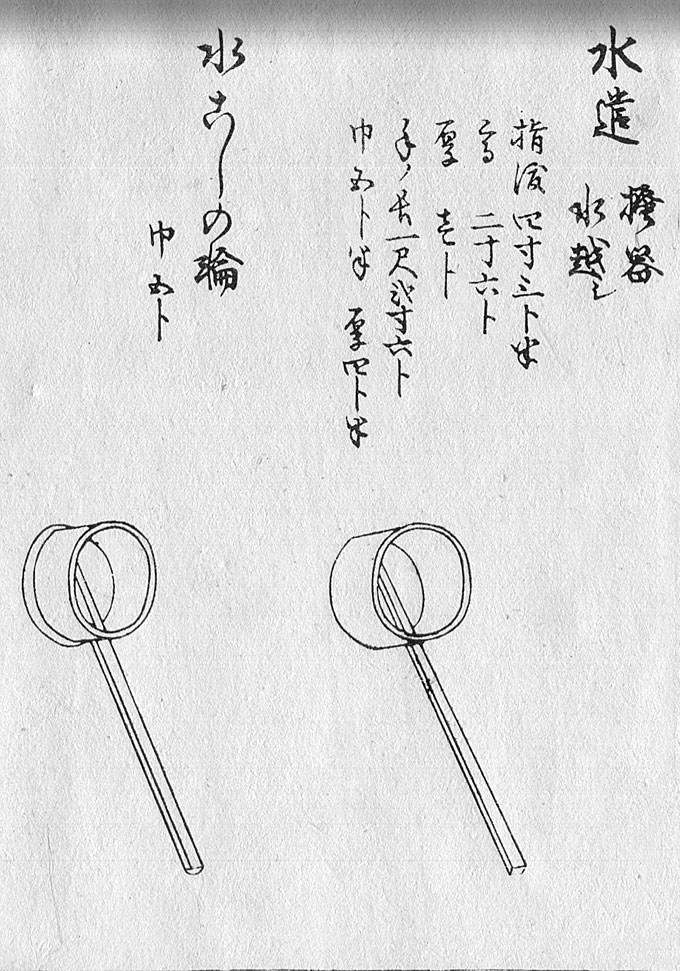 水遣
掩器
水越し
指渡四寸三卜半
高 二寸六卜
厚 壱卜
手ノ長一尺弐寸六卜
巾五卜半 厚四卜半
水こしの輪
巾五卜